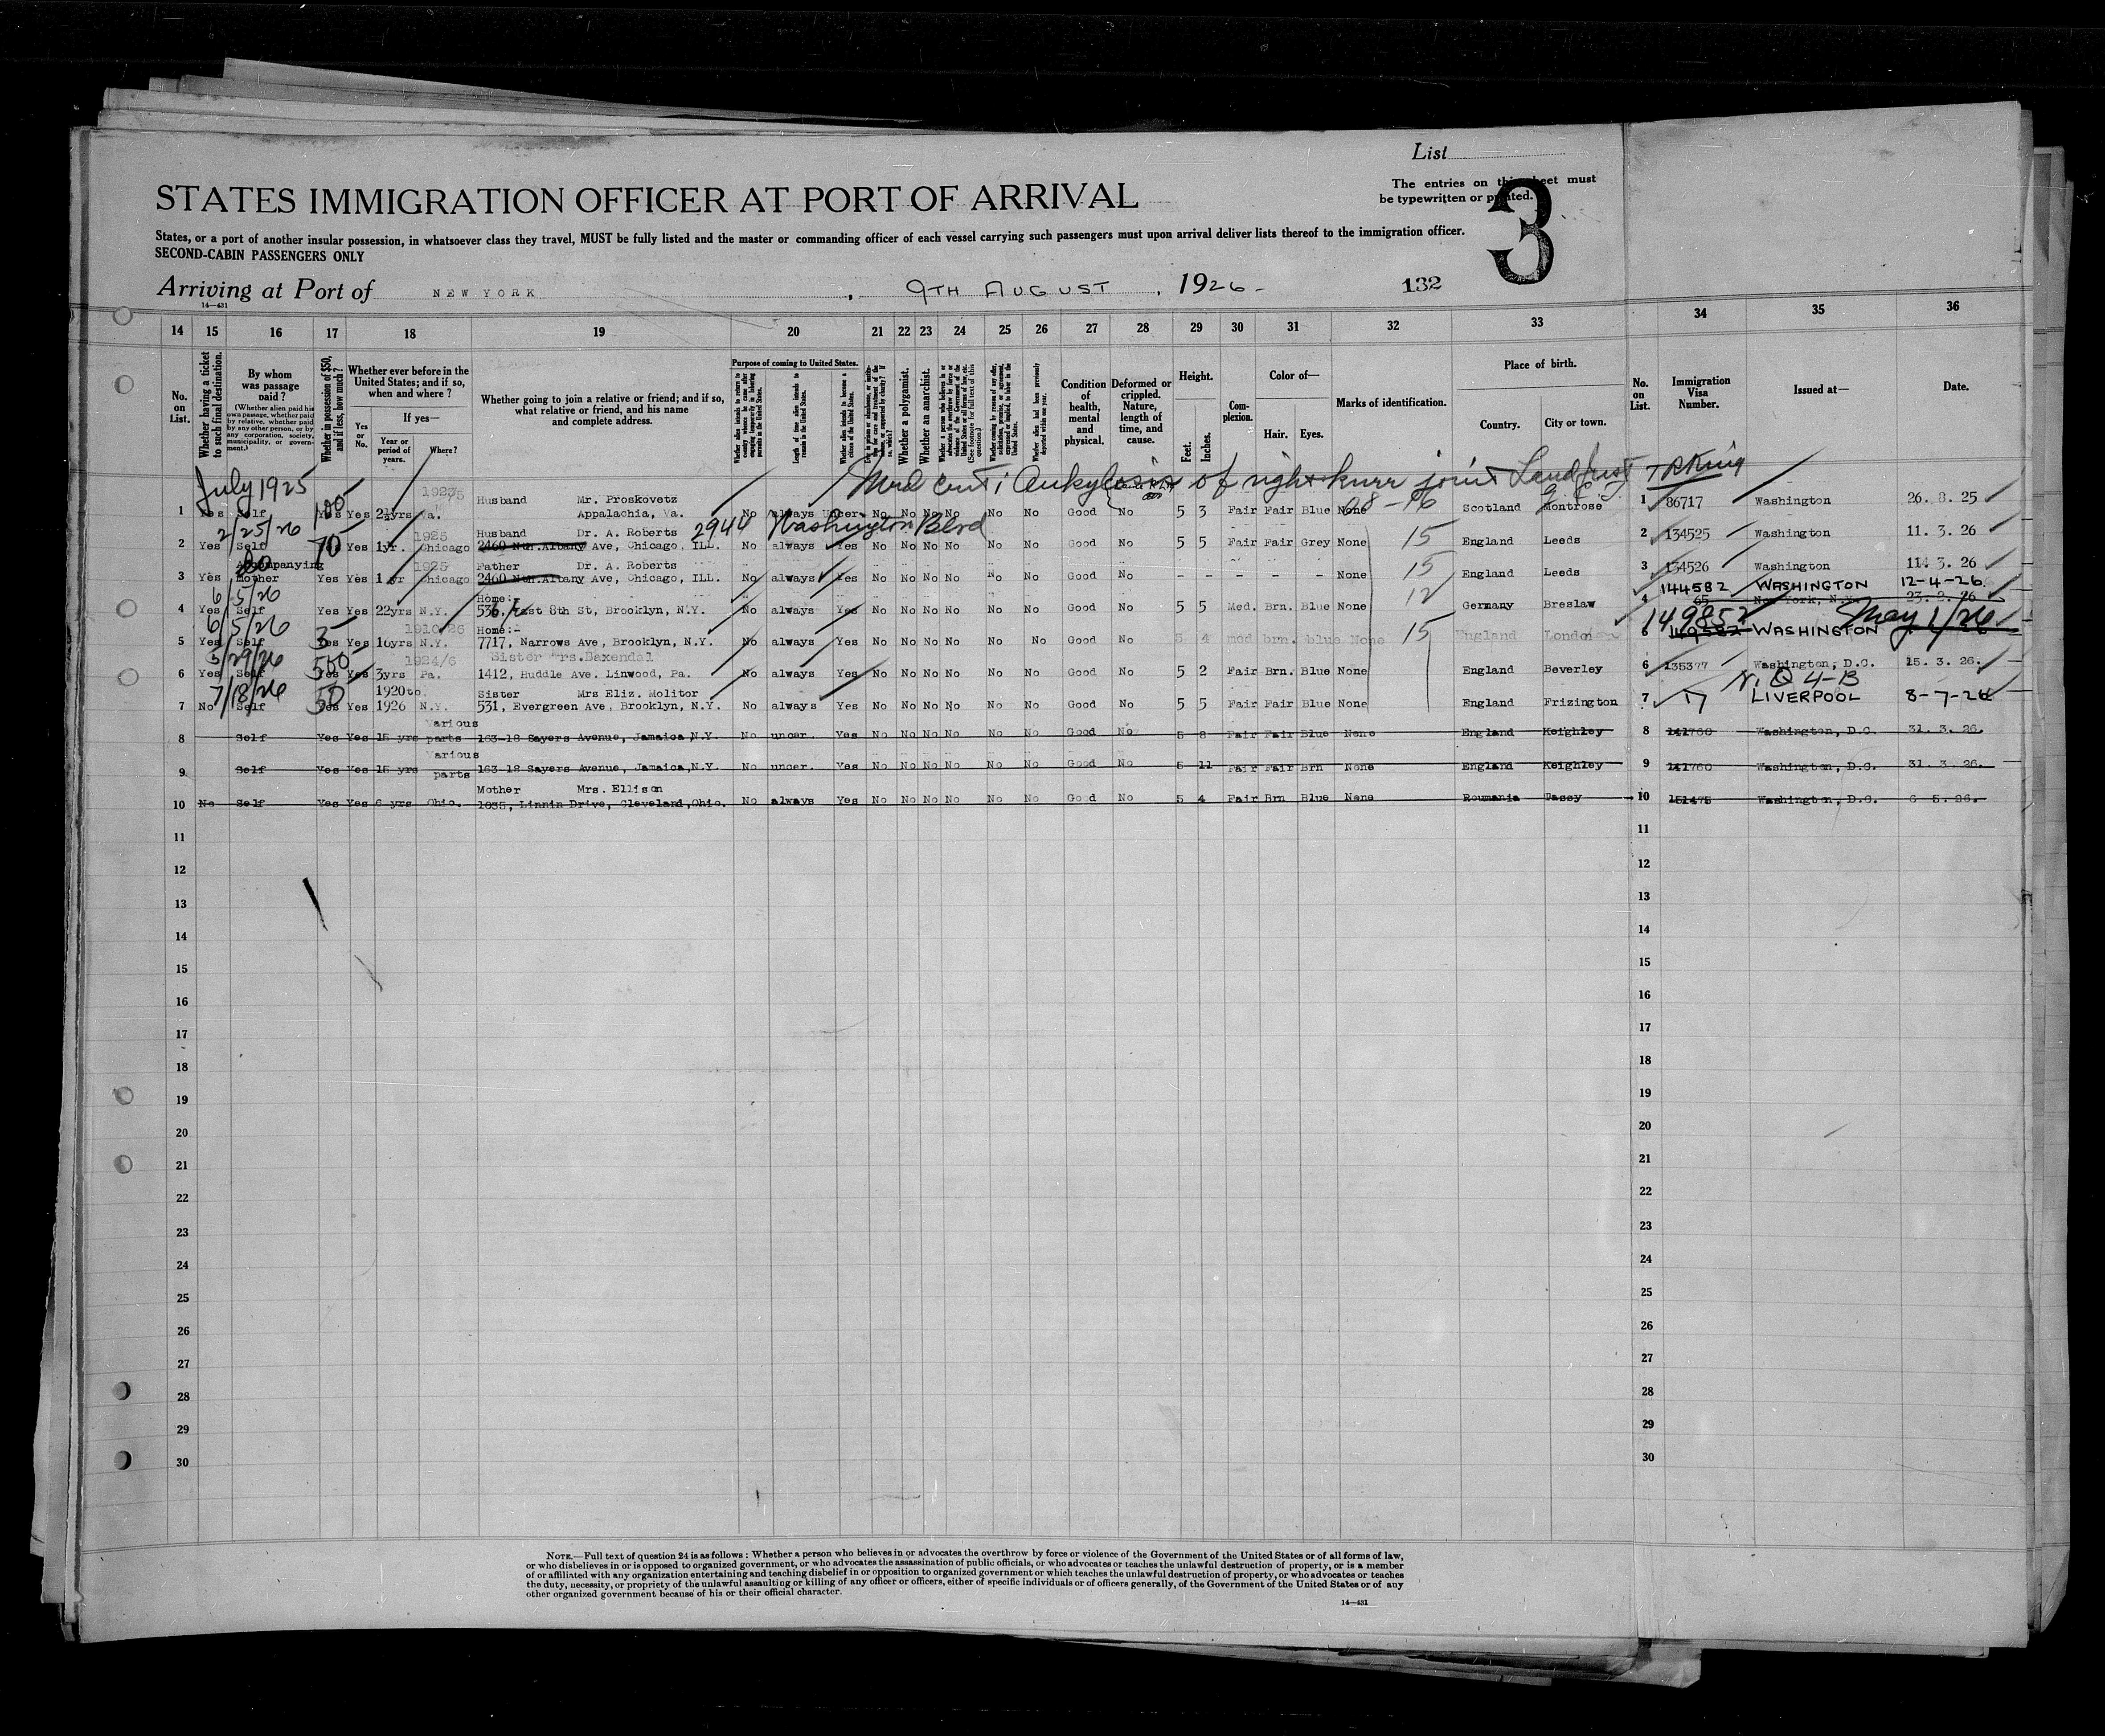 List
The entries on this sheet must
be typewritten or printed.
3
STATES IMMIGRATION OFFICER AT PORT OF ARRIVAL
States, or a port of another insular possession, in whatsoever class they travel, MUST be fully listed and the master or commanding officer of each vessel carrying such passengers must upon arrival deliver lists thereof to the immigration officer.
SECOND-CABIN PASSENGERS ONLY
Arriving at Port of NEW YORK, 9TH AUGUST, 1926- 132
14—431
14 15 16 17 18 19 20 21 22 23 24 25 26 27 28 29 30 31 32 33 34 35 36
No. on List.
Whether having a ticket to such final destination.
By whom was passage paid?
(Whether alien paid his own passage, whether paid by relative, whether paid by any other person, or by any corporation, society, municipality, or government.)
Whether in possession of $50, and if less, how much?
Whether ever before in the United States; and if so, when and where?
Yes or No.
If yes—
Year or period of years.
Where?
Whether going to join a relative or friend; and if so, what relative or friend, and his name and complete address.
Purpose of coming to United States.
Length of time alien intends to remain in the United States.
Whether alien intends to become a citizen of the United States.
Whether a polygamist.
Whether an anarchist.
Condition of health, mental and physical.
Deformed or crippled. Nature, length of time, and cause.
Height.
Feet. Inches.
Complexion.
Color of—
Hair. Eyes.
Marks of identification.
Place of birth.
Country. City or town.
No. on List.
Immigration Visa Number.
Issued at—
Date.
July 1925
Med Cert; Ankylosis of right knee joint
1 Yes Self 100 Yes Yes 2½yrs Va. Husband Mr. Proskovetz
Appalachia, Va. No always Uncer. No No No No No No Good No 5 3 Fair Fair Blue None Scotland Montrose 1 86717 Washington 26. 8. 25
2/25/26 1925 2944 Washington Blvd
2 Yes Self 70 Yes 1yr. Chicago Husband Dr. A. Roberts
2460 Nth.Albany Ave, Chicago, ILL. No always Yes No No No No No No Good No 5 5 Fair Fair Grey None 15 England Leeds 2 134525 Washington 11. 3. 26
Accompanying 1925
3 Yes Mother Yes Yes 1 yr Chicago Father Dr. A. Roberts
2460 Nth.Albany Ave, Chicago, ILL. No always Yes No No No No No No Good No - - - - - None 15 England Leeds 3 134526 Washington 11 3. 26
6/5/26 144582 WASHINGTON 12-4-26
4 Yes Self Yes Yes 22yrs N.Y. Home:-
536, East 8th St, Brooklyn, N.Y. No always Yes No No No No No No Good No 5 5 Med. Brn. Blue None 12 Germany Breslaw 4 65 New York, N.Y.
6/5/26 1910/26 149852 May 1/26
5 Yes Self Yes Yes 16yrs N.Y. Home:-
7717, Narrows Ave, Brooklyn, N.Y. No always Yes No No No No No No Good No 5 4 med brn. blue None 15 England London 5 WASHINGTON
5/29/26 500 1924/6
6 Yes Self Yes Yes 3yrs Pa. Sister
1412, Huddle Ave. Linwood, Pa. No always Yes No No No No No No Good No 5 2 Fair Brn. Blue None England Beverley 6 135377 Washington, D.C. 15. 3. 26.
7/18/26 50 N.Q 4-B
7 No Self Yes Yes 1920to 1926 N.Y. Sister Mrs Eliz. Molitor
531, Evergreen Ave, Brooklyn, N.Y. No always Yes No No No No No No Good No 5 5 Fair Fair Blue None England Frizington 7 17 LIVERPOOL 8-7-26
8 Self Yes Yes 15 yrs Various parts 163-18 Sayers Avenue, Jamaica,N.Y. No uncer. Yes No No No No No No Good No 5 8 Fair Fair Blue None England Keighley 8 141760 Washington, D.C. 31. 3. 26.
9 Self Yes Yes 15 yrs Various parts 163-18 Sayers Avenue, Jamaica,N.Y. No uncer. Yes No No No No No No Good No 5 11 Fair Fair Brn None England Keighley 9 141760 Washington, D.C. 31. 3. 26.
10 No Self Yes Yes 6 yrs Ohio. Mother Mrs. Ellison
1035, Linnin Drive, Cleveland,Ohio. No always Yes No No No No No No Good No 5 4 Fair Brn Blue None Roumania Jassy 10 151475 Washington, D.C. 6 5. 26.
11 11
12 12
13 13
14 14
15 15
16 16
17 17
18 18
19 19
20 20
21 21
22 22
23 23
24 24
25 25
26 26
27 27
28 28
29 29
30 30
NOTE.—Full text of question 24 is as follows: Whether a person who believes in or advocates the overthrow by force or violence of the Government of the United States or of all forms of law,
or who disbelieves in or is opposed to organized government, or who advocates the assassination of public officials, or who advocates or teaches the unlawful destruction of property, or is a member
of or affiliated with any organization entertaining and teaching disbelief in or opposition to organized government or which teaches the unlawful destruction of property, or who advocates or teaches
the duty, necessity, or propriety of the unlawful assaulting or killing of any officer or officers, either of specific individuals or of officers generally, of the Government of the United States or of any
other organized government because of his or their official character.
14—431